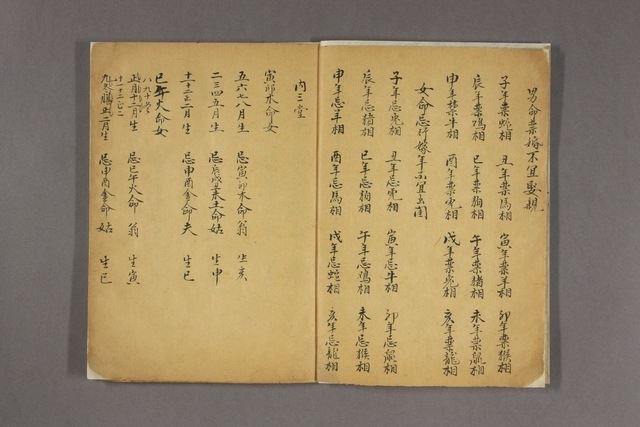 男命禁婚不宜娶親
子年禁蛇相 丑年禁馬相 寅年禁羊相 卯年禁猴相
辰年禁鸡相 巳年禁狗相 午年禁猪相 未年禁鼠相
申年禁牛相 酉年禁虎相 戌年禁兎相 亥年禁龍相
女命忌行嫁年不宜出閣
子年忌兎相 丑年忌虎相 寅年忌牛相 卯年忌鼠相
辰年忌猪相 巳年忌狗相 午年忌鸡相 未年忌猴相
申年忌羊相 酉年忌馬相 戌年忌蛇相 亥年忌龍相
内三堂
寅卯木命女
五六七八月生 忌寅卯木命翁 生亥
二三四五月生 忌辰戌丑未土命姑 生申
十二正二月生 忌申酉金命夫 生巳
巳午火命女
八九十
十二月生 忌巳午火命 翁 生寅
二月生 忌申酉金命 姑 生巳